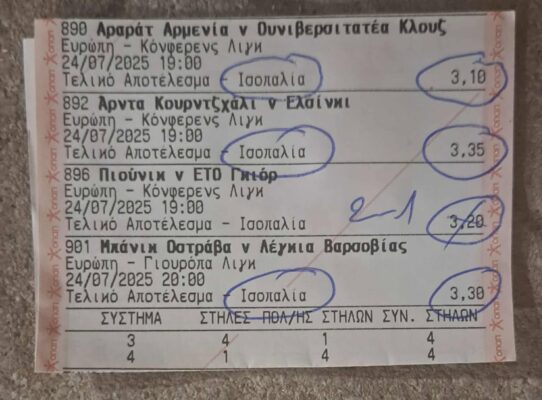 890 Αραράτ Αρμενία v Ουνιβερσιτατέα Κλουζ
Ευρώπη - Κόνφερενς Λιγκ
24/07/2025 19:00
Τελικό Αποτέλεσμα - Ισοπαλία 3,10
892 Άρντα Κουρντζχάλι v Ελσίνκι
Ευρώπη - Κόνφερενς Λιγκ
24/07/2025 19:00
Τελικό Αποτέλεσμα - Ισοπαλία 3,35
896 Πιούνικ v ΕΤΟ Γκιόρ
Ευρώπη - Κόνφερενς Λιγκ
24/07/2025 19:00
2-1
Τελικό Αποτέλεσμα - Ισοπαλία 3,20
901 Μπάνικ Οστράβα v Λέγκια Βαρσοβίας
Ευρώπη - Γιουρόπα Λιγκ
24/07/2025 20:00
Τελικό Αποτέλεσμα - Ισοπαλία 3,30
ΣΥΣΤΗΜΑ ΣΤΗΛΕΣ ΠΟΛ/ΗΣ ΣΤΗΛΩΝ ΣΥΝ. ΣΤΗΛΩΝ
3 4 1 4
4 1 4 4